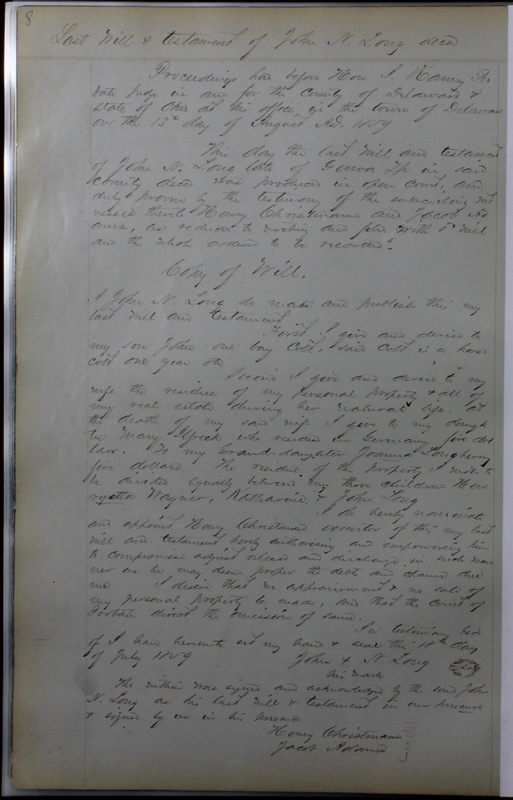 8
Last Will & testament of John N. Long decd
Proceedings had before Hon. T. Pro
bate Judg in and for the County of Delaware &
State of Ohio at his office in the town of Delaware
on the 13th day of August A.D. 1859
This day the last Will and testament
of John N. Long late of Tp in said
County decd was produced in open Court, and
duly proven by the testimony of the subscribing wit
nesses thereto Henry Christmann and Jacob Ad
ams, as reduced to writing and filed with sd Will
and the whole ordered to be recorded.
Copy of Will.
I John N. Long do make and publish this my
last will and testament
First. I give and devise to
my son John one bay Colt, said Colt is a horse
colt one year old
Second I give and devise to my
wife the residue of my personal property & all of
my real estate during her natural life. at
the death of my said wife I give to my daugh
ter Mary who resides in Germany five dol
lars. To my Grand-daughter Joanna
five dollars The residue of the property I wish to
be divided equally between my three children Hen
ryetta Wagner, Katharine & John Long
I do hereby nominate
and appoint Henry Christmann executor of this my last
will and testament hereby authorising and empowering him
to compromise adjust release and discharge in such man
ner as he may deem proper the debts and claims due
me I desire that no appraisement & no sale of
my personal property be made, and that the Court of
Probate direct the omission of same.
In testimony here
of I have hereunto set my hand & seal this 11th day
of July 1859 John X N Long
his mark
The within was signed and acknowledged by the said John
N. Long as his last will & testament in our presence
& signed by us in his presence
Henry Christmann
Jacob Adams